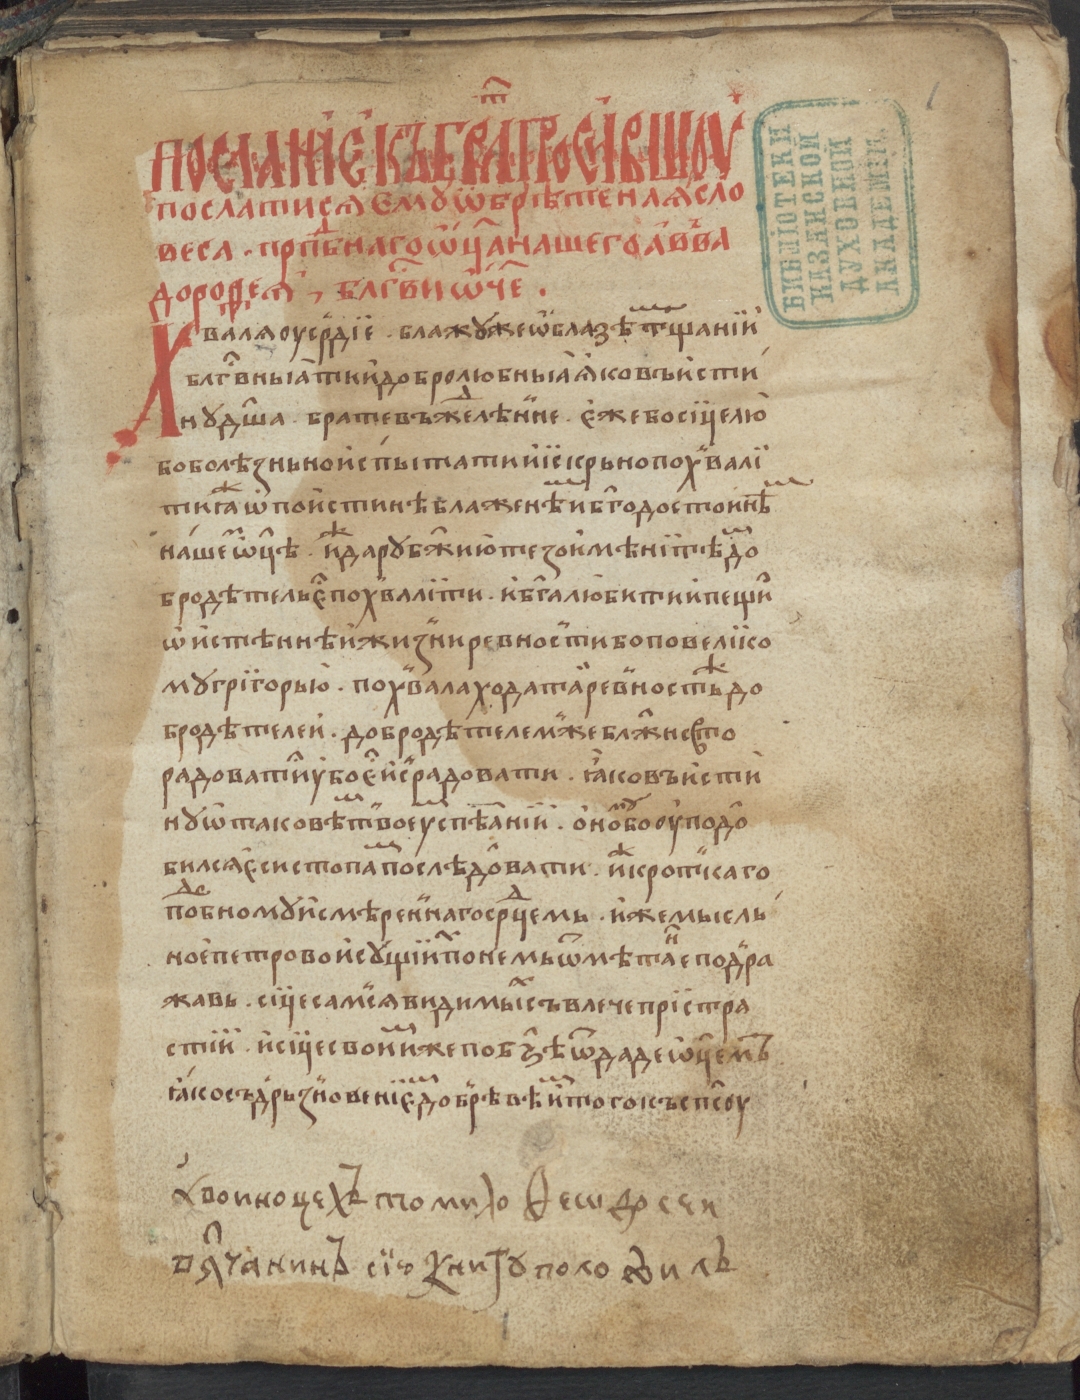 ПОСЛАНІЕ КЪ БРАТꙋ ПРОСИВШОУ
послатисѧ ємꙋ ѡбрѣтенаѧ сло
веса · прпⷣбнаго ѡц҃а нашего авва
дороѳеѧ , блгⷭ҇ви ѡч҃е .
Хвалѧ ѹсрⷣіе · блажꙋ же ѡ блазѣ тщаніи
блг҃вныѧ ти и добролюбныѧ ꙗко въисти
нꙋ дш҃а · брате въжделѣнне · єже бо сице лю
боболѣзньно испытати и искрьно похвали
ти ꙗже поистинѣ блаженѣмь и бг҃одостоинѣмь
нашемь ѡц҃ѣ · и дарꙋ бж҃ию тезоименитѣмь до
бродѣтель єⷭ похвалити · и бг҃а любити и пещи
ѡ истѣннѣи жизни ревность ибо по велико
мꙋ григорью · похвала ходатаи ревности до
бродѣтелеи · добродѣтелемже блж҃нство
радоватисѧ ꙋбо єⷭ и срадовати · ꙗко въисти
нꙋ ѡ таковѣмь твоемь ꙋспѣаніи · ономꙋ бо ѹподо
билсѧ єси стопамъ послѣдовати · иже кротькаго
подобномꙋ и смѣреннаго срⷣцемь · иже мысль
ное петрово и сꙋщихъ по немь ѿмѣтаніе подра
жавь · сице самсѧ видимыхъ съвлече пристра
стіи · и сице своимиже по бз҃ѣ ѿдаде ѡц҃емъ
ꙗко съ дрьзновеніемь добрѣ вѣмь и того къ спс҃ꙋ
Ꙋ воиноцехъ томило ѳеѡдросеи
вѧтчанинъ сію книгꙋ положилъ
БИБЛІОТЕКИ
КАЗАНСКОЙ
ДУХОВНОЙ
АКАДЕМІИ.